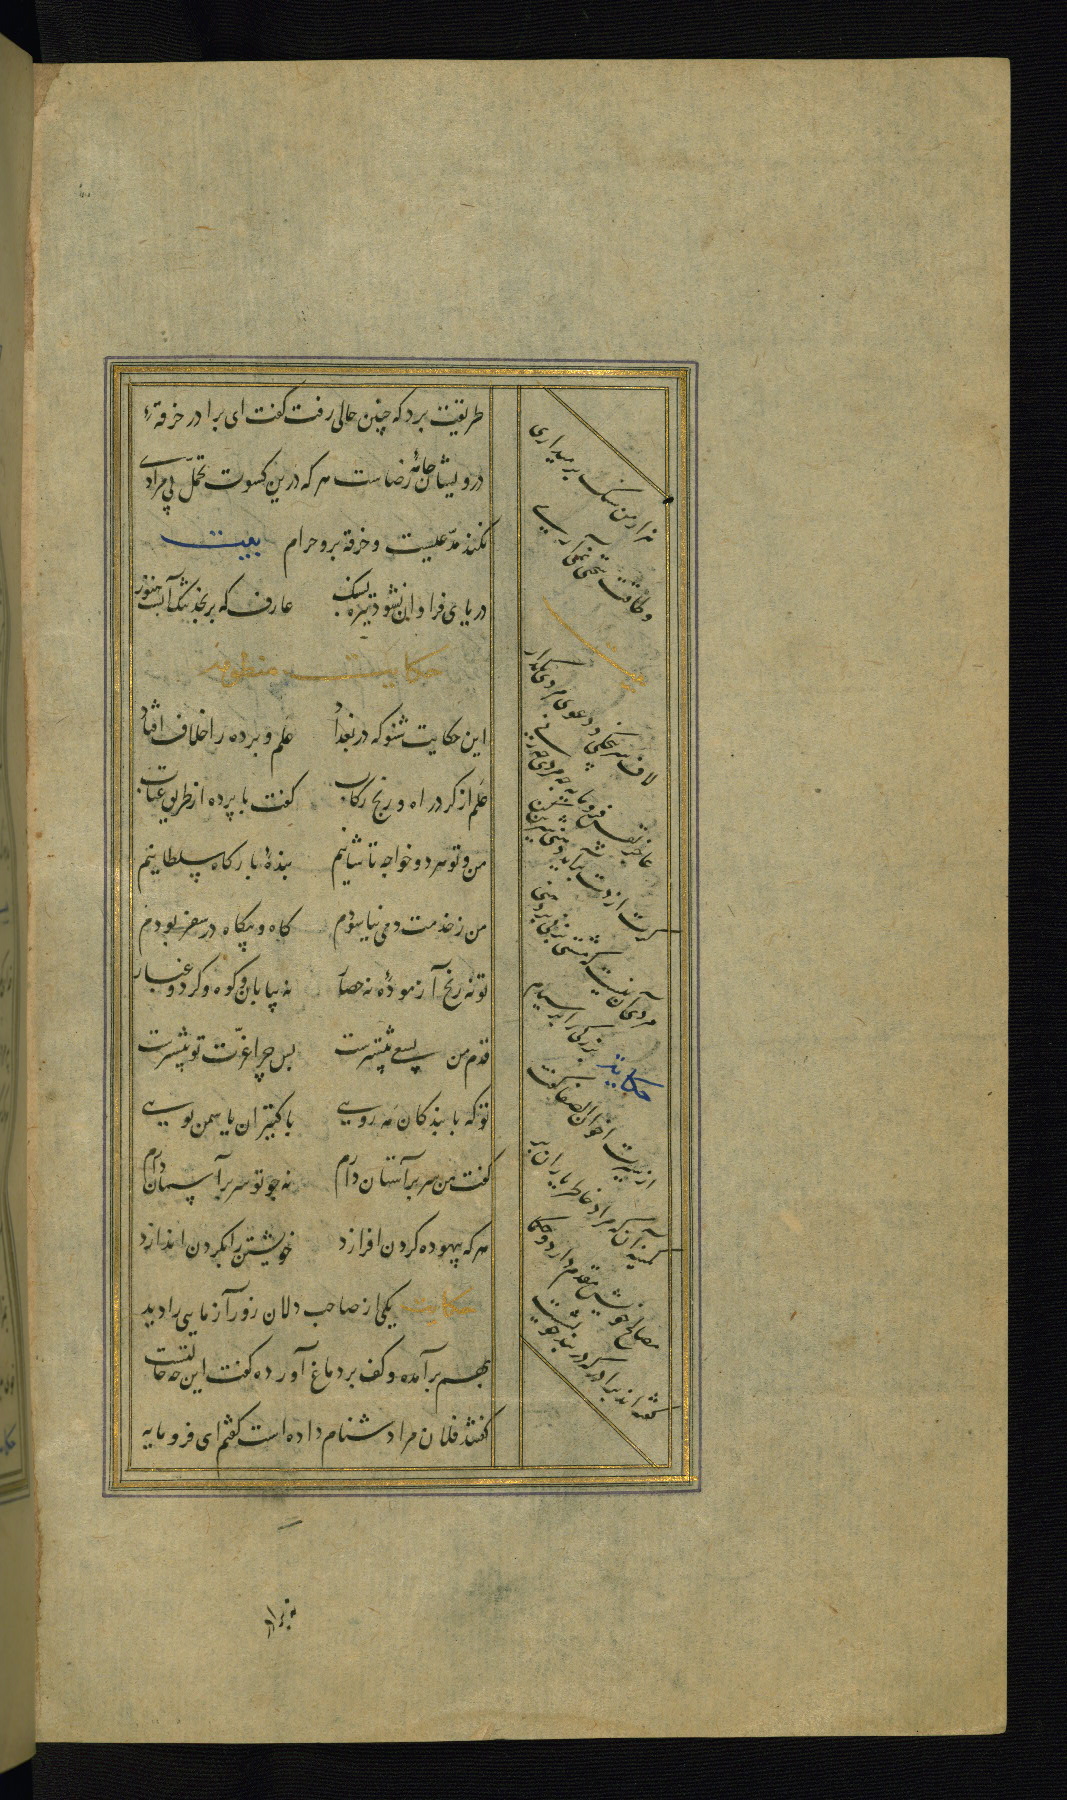 طریقت برد که چنین حالی رفت گفت ای برادر خرقهٔ
درویشان جامهٔ رضاست هر که درین کسوت تحمّل بی مرادی
نکند مدّعیست و خرقه برو حرام بیت
دریای فراوان نشود تیره بسنگ عارف که برنجد تنک آبست هنوز
حکایت منظومه
این حکایت شنو که در بغداد علم و پرده را خلاف افتاد
علم از گرد راه و رنج رکاب گفت با پرده از طریق عتاب
من و تو هر دو خواجه تاشانیم بندهٔ بارگاه سلطانیم
من ز خدمت دمی نیاسودم گاه و بیگاه در سفر بودم
تو نه رنج آزمودهٔ نه حصار نه بیابان و کوه و گرد و غبار
قدم من بسعی پیشترست پس چرا عزّت تو بیشترست
تو که با بندگان مه رویی با کنیزان یاسمن بویی
گفت من سر بر آستان دارم نه چو تو سر بر آسمان دارم
هر که بیهوده گردن افرازد خویشتن را بگردن اندازد
حکایت یکی از صاحب دلان زورآزمایی را دید
بهم برآمده و کف بر دماغ آورده گفت این چه حالتست
گفتند فلان مرا دشنام داده است گفتم ای فرومایه
هزار من سنگ برمیداری
و طاقت سخنی نمی آری
لاف سرپنجگی و دعوی مردی بگذار
عاجز نفس فرومایه چه مردی چه زنی
گرت از دست برآید دهنی شیرین کن
مردی آن نیست که مشتی بزنی بر دهنی
حکایت بزرگی را پرسیدم
از سیرت اخوان الصفا گفت
کمینه آن که مراد خاطر یاران بر
مصالح خویش مقدم دارد و حکما
گفته اند برادر که در بند خویشست